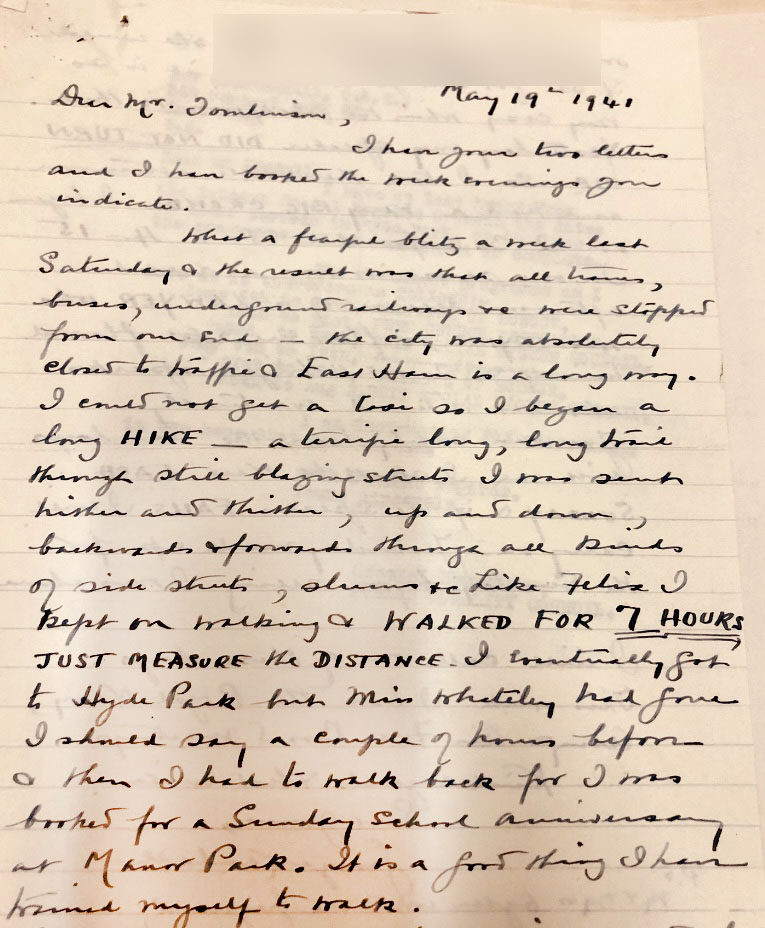 May 19th 1941
Dear Mr. Tomlinson,
I have your two letters
and I have booked the week evenings you
indicate.
What a fearful blitz a week last
Saturday & the result was that all trams,
buses, underground railways &c were stopped
from our end – the city was absolutely
closed to traffic & East Ham is a long way.
I could not get a taxi so I began a
long HIKE – a terrific long, long trail
through still blazing streets I was sent
hither and thither, up and down,
backwards & forwards through all kinds
of side streets, slums &c Like Felix I
kept on walking & WALKED FOR 7 HOURS
JUST MEASURE the DISTANCE. I eventually got
to Hyde Park but Miss Whateley had gone
I should say a couple of hours before
& then I had to walk back for I was
booked for a Sunday School anniversary
at Manor Park. It is a good thing I have
trained myself to walk.